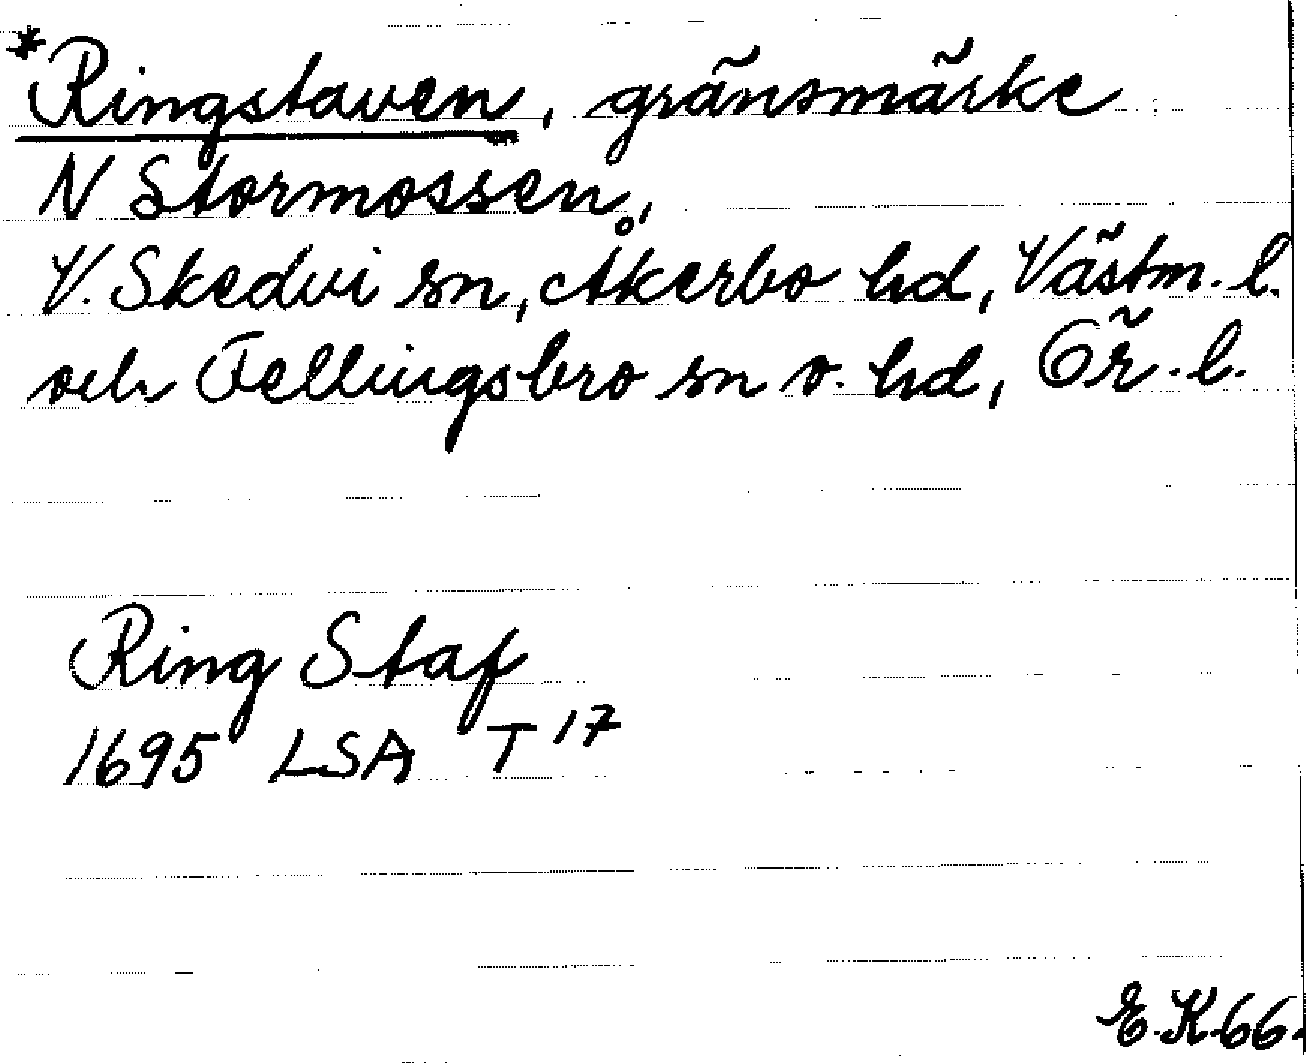 *Ringstaven, gränsmärke
N Stormossen,
V. Skedvi sn, Åkerbo hd, Västm. l.
och Fellingsbro sn o. hd, Ör. l.
Ring Staf
1695 LSA T 17
E.K.66.